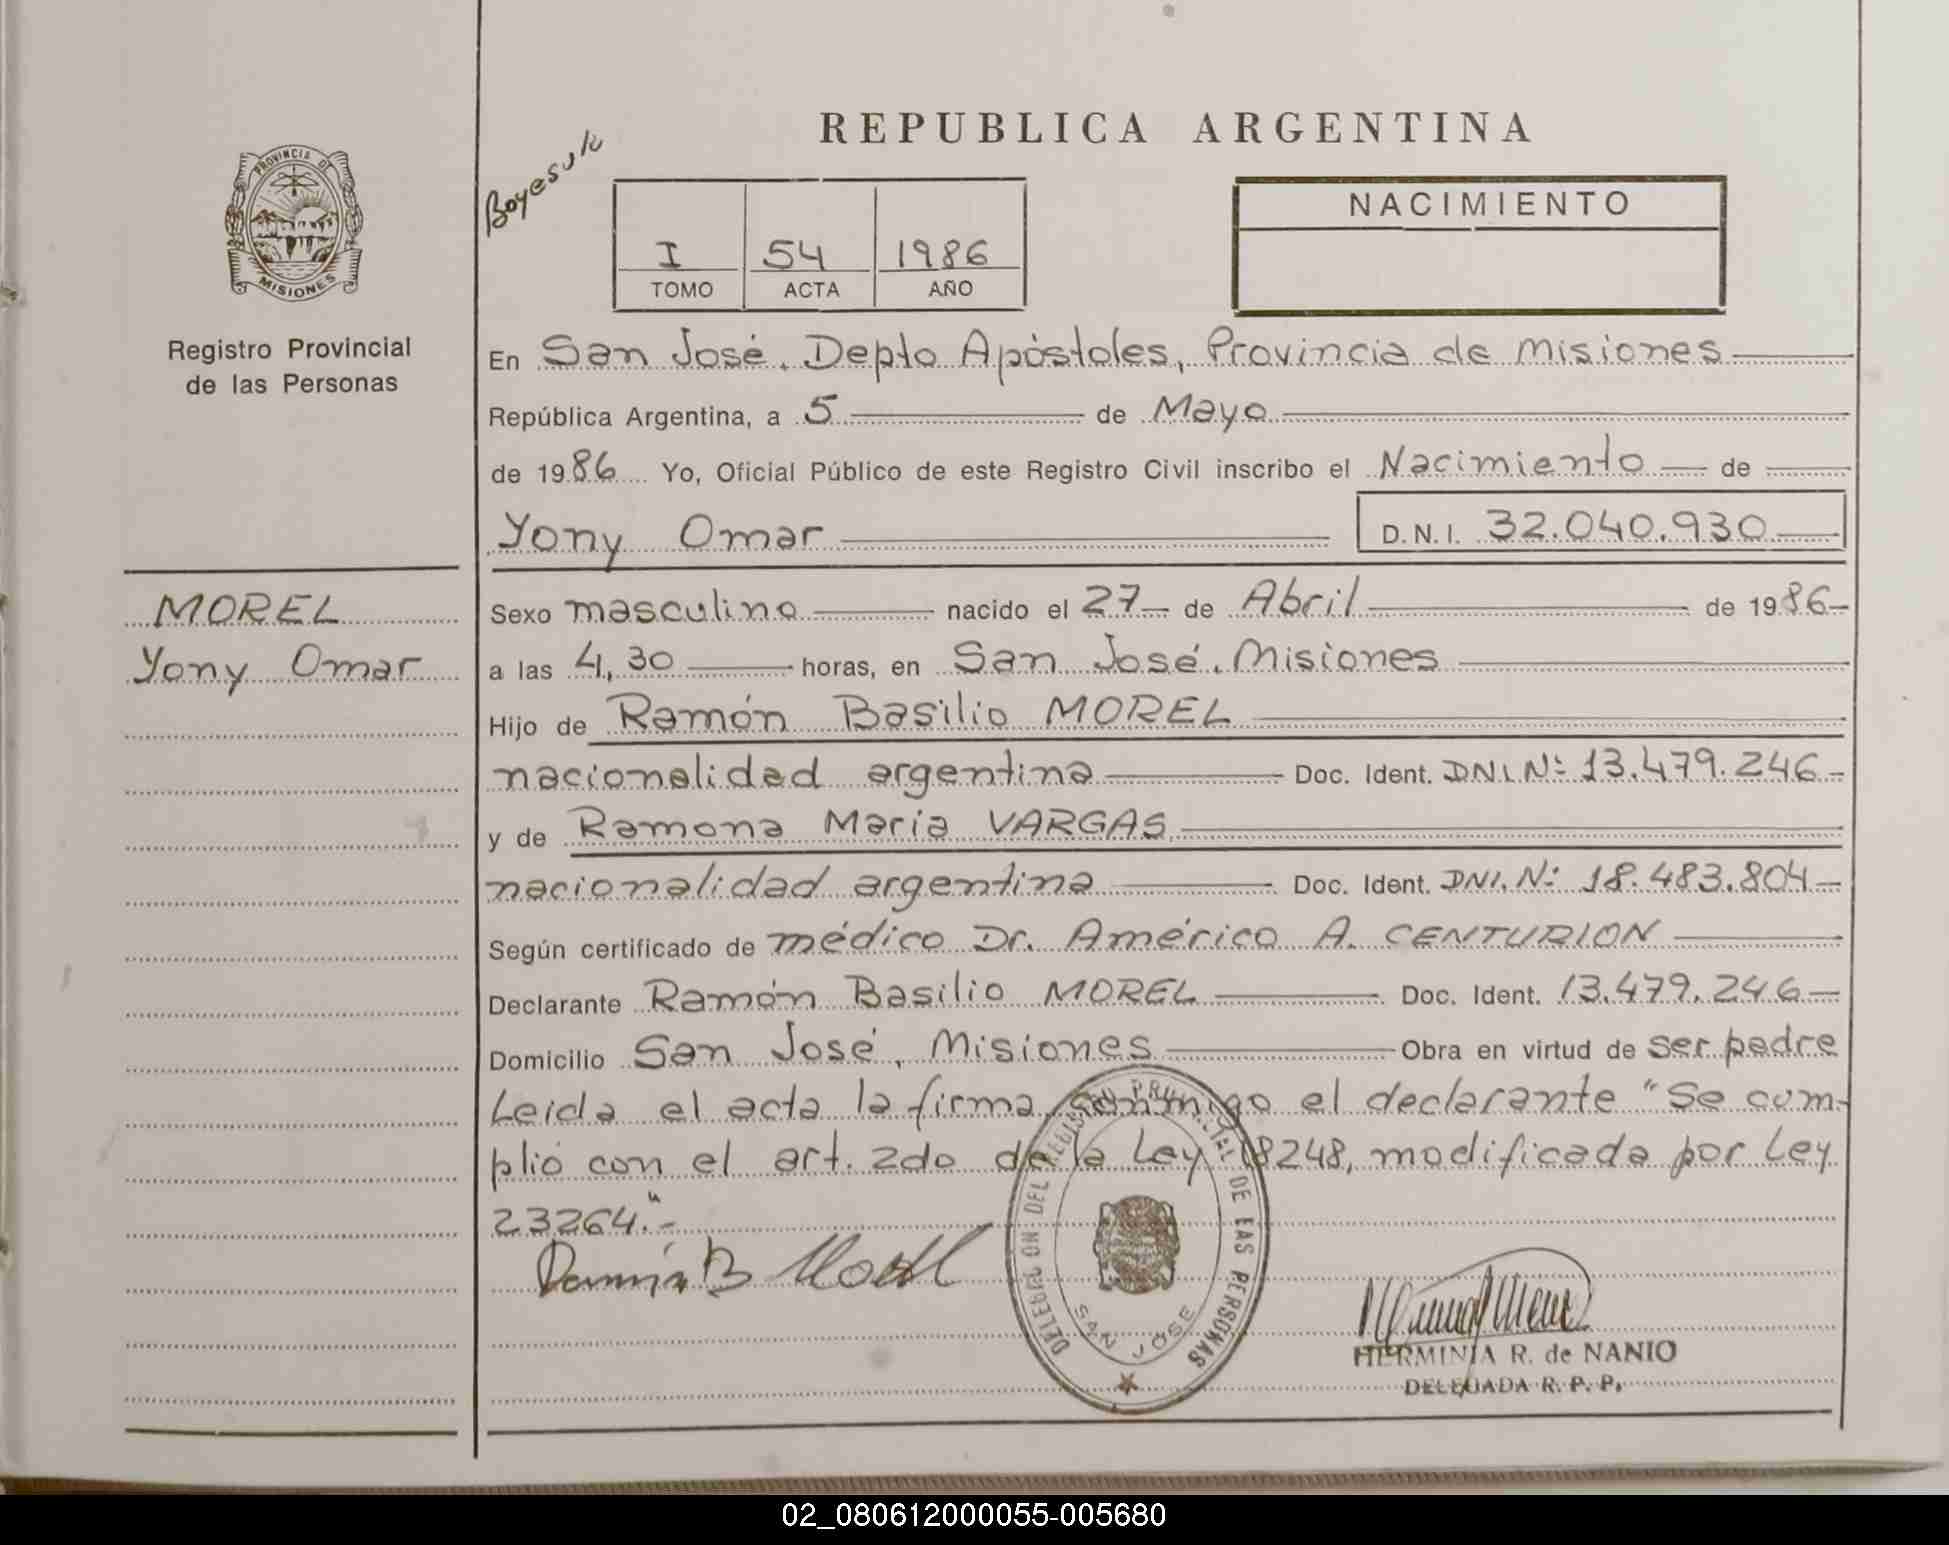 REPUBLICA ARGENTINA
Boyesuk
PROVINCIA DE
MISIONES
Registro Provincial
de las Personas
I 54 1986
TOMO ACTA AÑO
NACIMIENTO
En San José. Depto Apóstoles, Provincia de Misiones
República Argentina, a 5 de Mayo
de 1986 Yo, Oficial Público de este Registro Civil inscribo el Nacimiento de
Yony Omar D.N.I. 32.040.930
MOREL
Yony Omar
Sexo masculino nacido el 27 de Abril de 1986
a las 4,30 horas, en San José. Misiones
Hijo de Ramón Basilio MOREL
nacionalidad argentina Doc. Ident. DNI.Nº 13.479.246
y de Ramona María VARGAS
nacionalidad argentina Doc. Ident. DNI.Nº 18.483.804
Según certificado de médico Dr. Américo A. CENTURION
Declarante Ramón Basilio MOREL Doc. Ident. 13.479.246
Domicilio San José, Misiones Obra en virtud de ser padre
Leida el acta la firma conmigo el declarante "Se cum-
plió con el art. 2do de la Ley 18248, modificada por Ley
23264."-
DELEGACION DEL REGISTRO PROVINCIAL DE LAS PERSONAS
SAN JOSE
HERMINIA R. de NANIO
DELEGADA R. P. P.
02_080612000055-005680